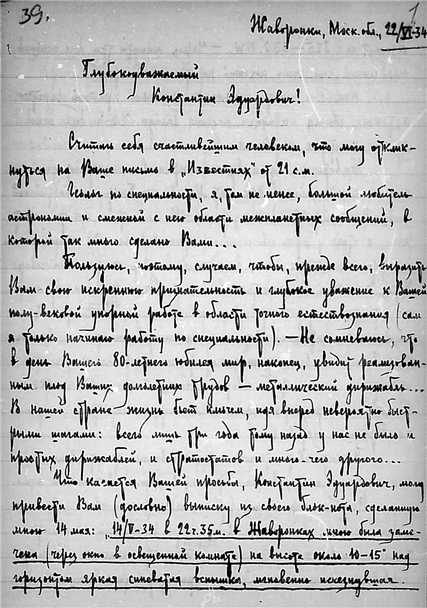 39.
1
Жаворонки, Моск. обл., 22/VI-34
Глубокоуважаемый
Константин Эдуардович!
Считаю себя счастливейшим человеком, что могу отклик-
нуться на Ваше письмо в „Известиях" от 21 с.м.
Геолог по специальности, я, тем не менее, большой любитель
астрономии и смежной с нею области межпланетных сообщений, в
которой так много сделано Вами...
Пользуюсь, поэтому, случаем, чтобы, прежде всего, выразить
Вам свою искреннюю признательность и глубокое уважение к Вашей
полу-вековой упорной работе в области точного естествознания (сам
я только начинаю работу по специальности). — Не сомневаюсь, что
в день Вашего 80-летнего юбилея мир, наконец, увидит реализован-
ным плод Ваших долголетних трудов — металлический дирижабль...
В нашей стране жизнь бьет ключем, идя вперед невероятно быст-
рыми шагами: всего лишь три года тому назад у нас не было и
простых дирижаблей, и стратостатов и много-чего другого...
Что касается Вашей просьбы, Константин Эдуардович, могу
привести Вам (дословно) выписку из своего блок-нота, сделанную
мною 14 мая: „14/V-34 в 22 г. 35 м. в Жаворонках мною была заме-
чена (через окно в освещенной комнате) на высоте около 10-15° над
горизонтом яркая синеватая вспышка, мгновенно исчезнувшая.